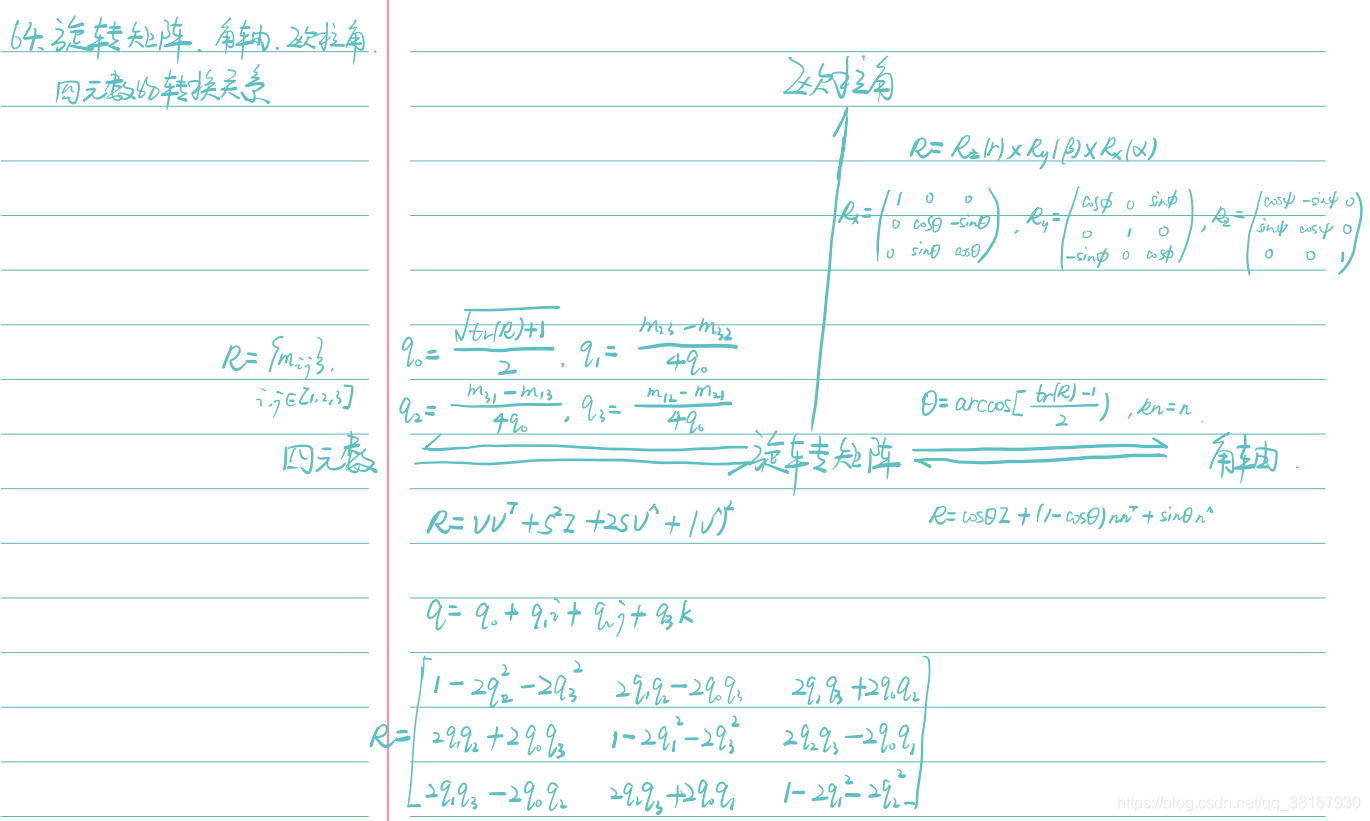 64. 旋转矩阵、角轴、欧拉角、
四元数的转换关系
欧拉角
R = R_z(r) × R_y(β) × R_x(α)
R_x = (1 0 0; 0 cosθ -sinθ; 0 sinθ cosθ), R_y = (cosϕ 0 sinϕ; 0 1 0; -sinϕ 0 cosϕ), R_z = (cosψ -sinψ 0; sinψ cosψ 0; 0 0 1)
R = {m_ij},
i,j ∈ [1,2,3]
q₀ = √(tr(R)+1) / 2, q₁ = (m₂₃ - m₃₂) / 4q₀
q₂ = (m₃₁ - m₁₃) / 4q₀, q₃ = (m₁₂ - m₂₁) / 4q₀
θ = arccos[(tr(R)-1)/2), Rn = n
四元数 旋转矩阵 角轴.
R = VVᵀ + S²I + 2SV^ + (V^)²
R = cosθI + (1-cosθ)nnᵀ + sinθn^
q = q₀ + q₁i + q₂j + q₃k
R = [1-2q₂²-2q₃² 2q₁q₂-2q₀q₃ 2q₁q₃+2q₀q₂
2q₁q₂+2q₀q₃ 1-2q₁²-2q₃² 2q₂q₃-2q₀q₁
2q₁q₃-2q₀q₂ 2q₂q₃+2q₀q₁ 1-2q₁²-2q₂²]
https://blog.csdn.net/qq_38167930